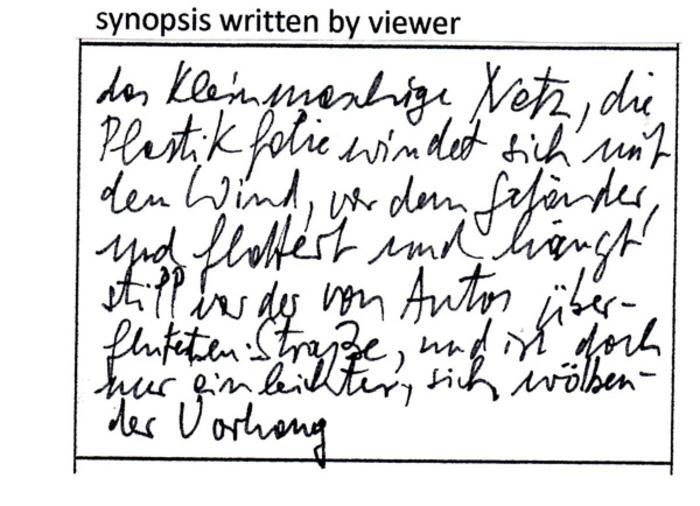 synopsis written by viewer
das kleinmaschige Netz, die
Plastikfolie windet sich mit
dem Wind, vor dem Geländer,
und flattert und hängt
still vor der von Autos über-
fluteten Straße, und ist doch
nur ein leichter, sich wölben-
der Vorhang